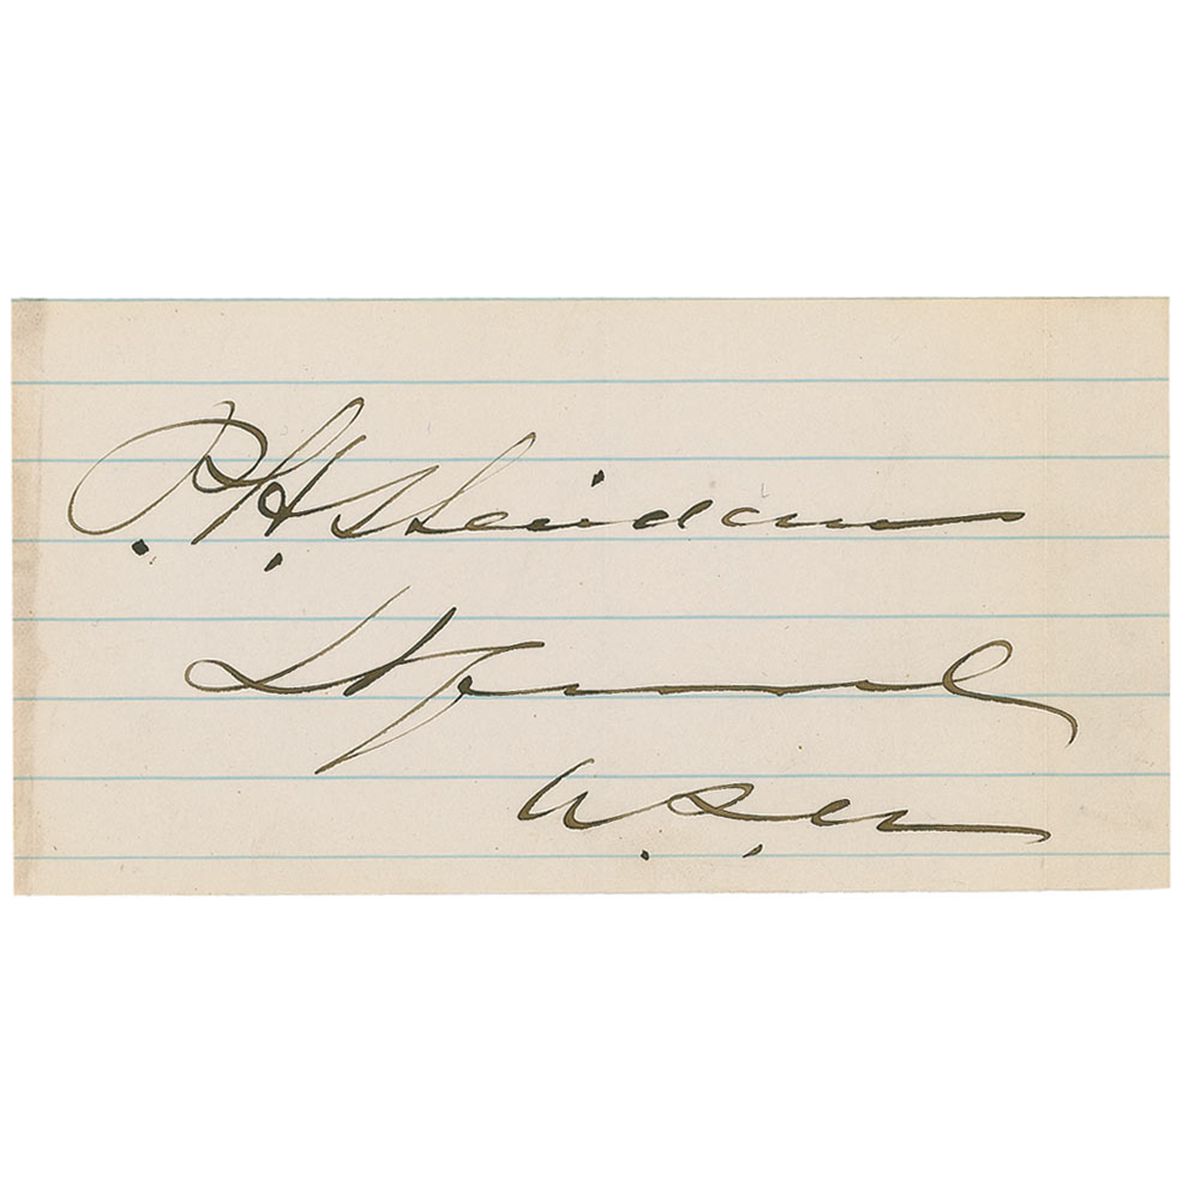 P. H. Sheridan
Lt General
U.S.A.